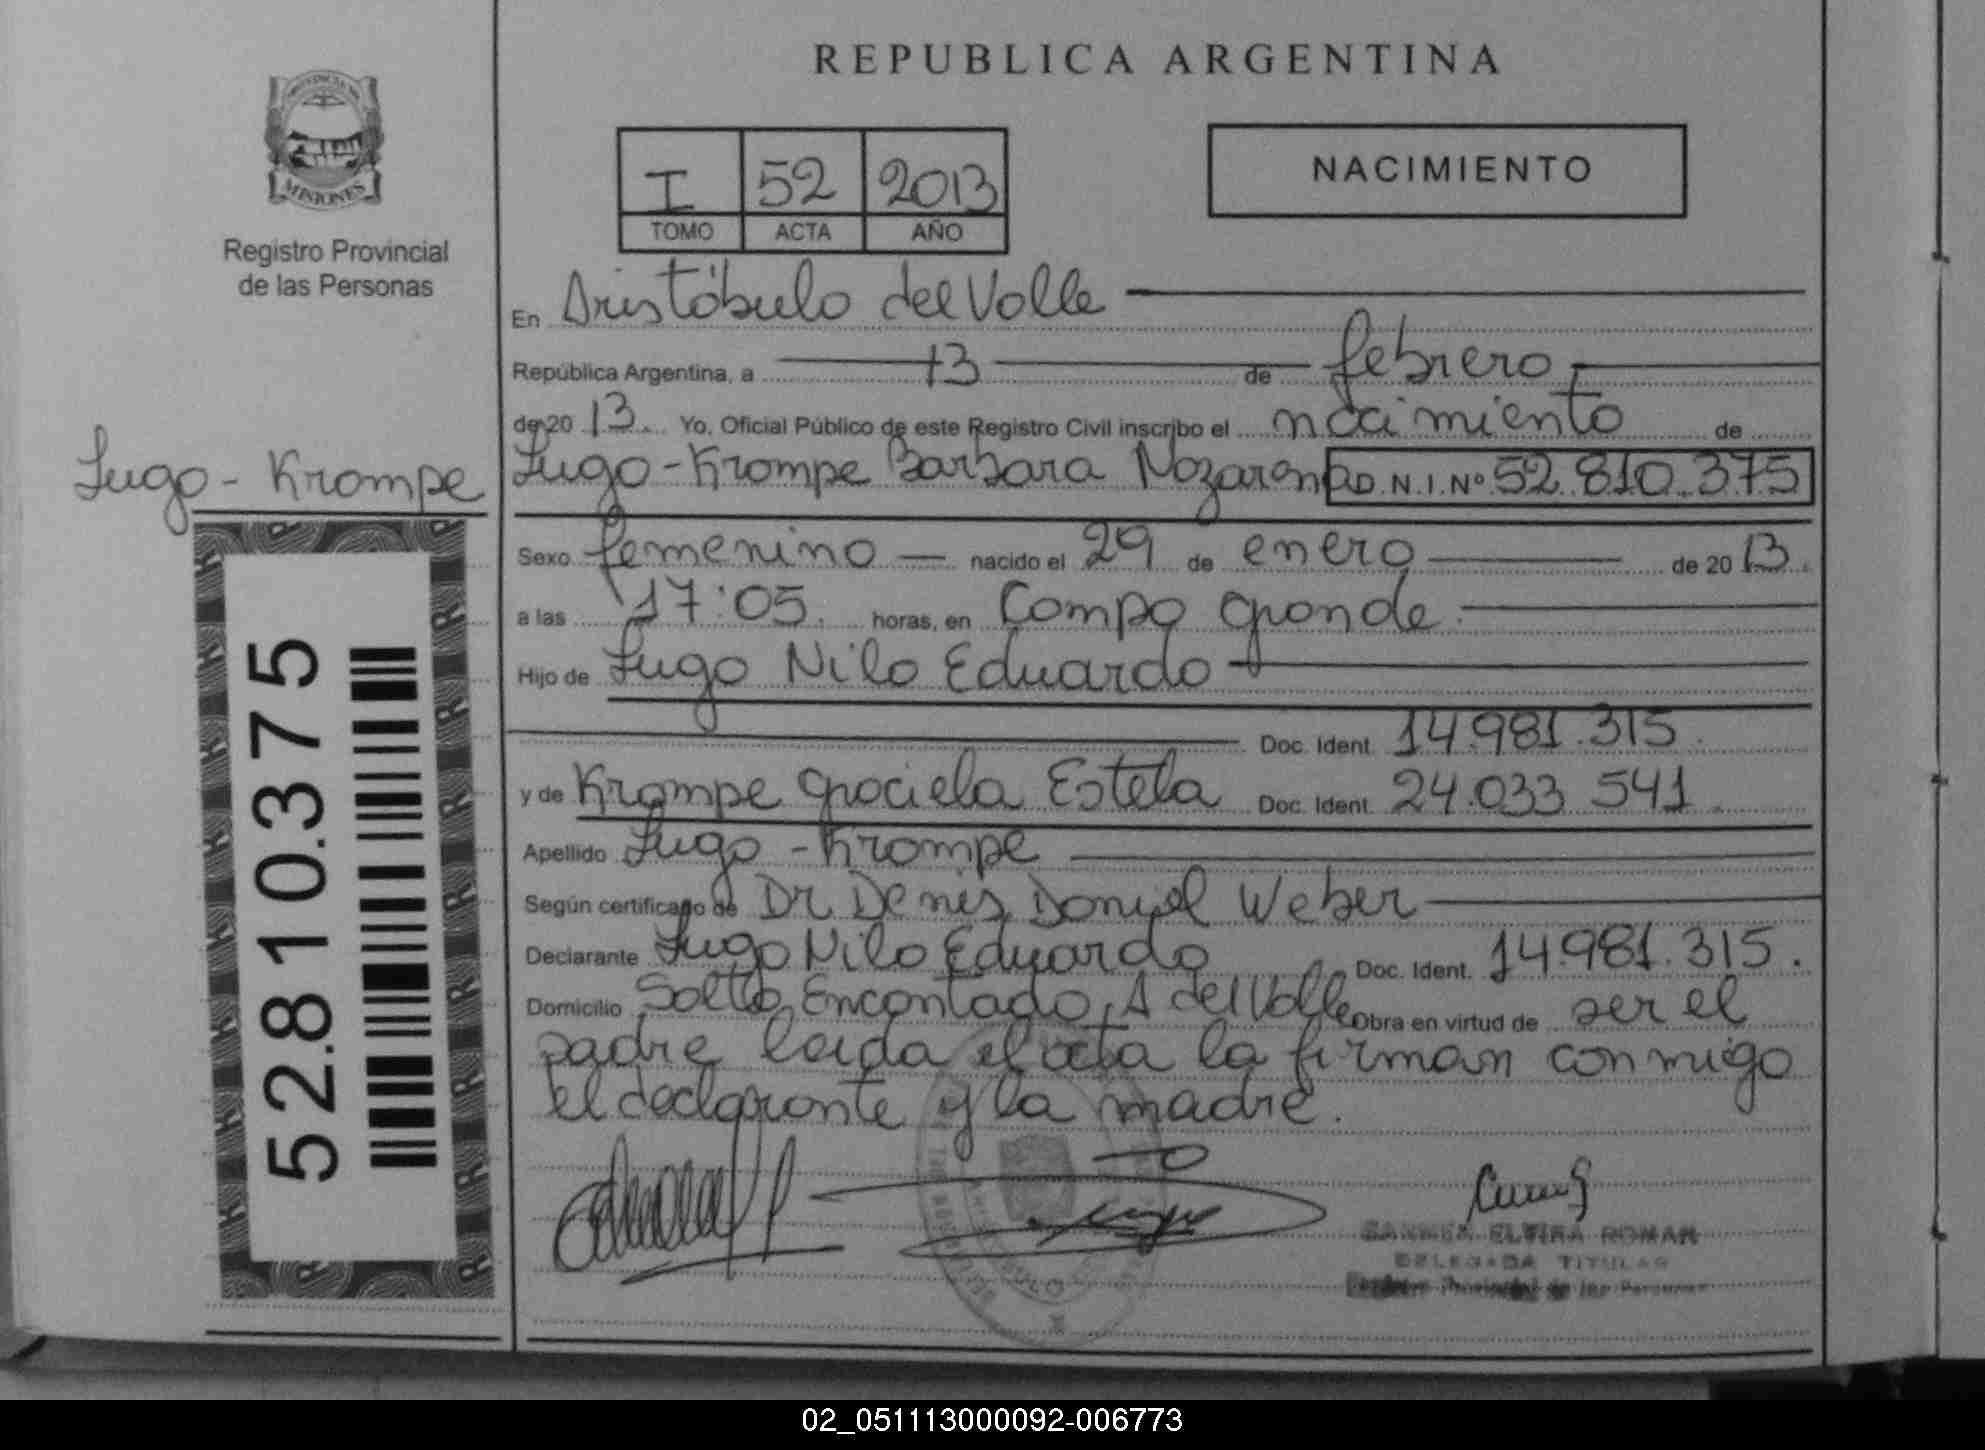 REPUBLICA ARGENTINA
PROVINCIA DE
MISIONES
Registro Provincial
de las Personas
I 52 2013
TOMO ACTA AÑO
NACIMIENTO
En Aristóbulo del Valle
República Argentina, a 13 de febrero
de 20 13. Yo, Oficial Público de este Registro Civil inscribo el nacimiento de
Lugo - Krompe
Lugo-Krompe Barbara Nazarena D.N.I.Nº 52.810.375
Sexo femenino nacido el 29 de enero de 20 13.
a las 17:05. horas, en Campo Grande.
Hijo de Lugo Nilo Eduardo
Doc. Ident. 14.981.315.
y de Krompe Graciela Estela Doc. Ident. 24.033 541.
Apellido Lugo - Krompe
Según certificado de Dr Denis Daniel Weber
Declarante Lugo Nilo Eduardo Doc. Ident. 14.981.315.
Domicilio Salto Encantado, A del Valle Obra en virtud de ser el
padre leida el acta la firman conmigo
el declarante y la madre.
52.810.375
CARMEN ELVIRA ROMAN
DELEGADA TITULAR
Registro Provincial de las Personas
02_051113000092-006773